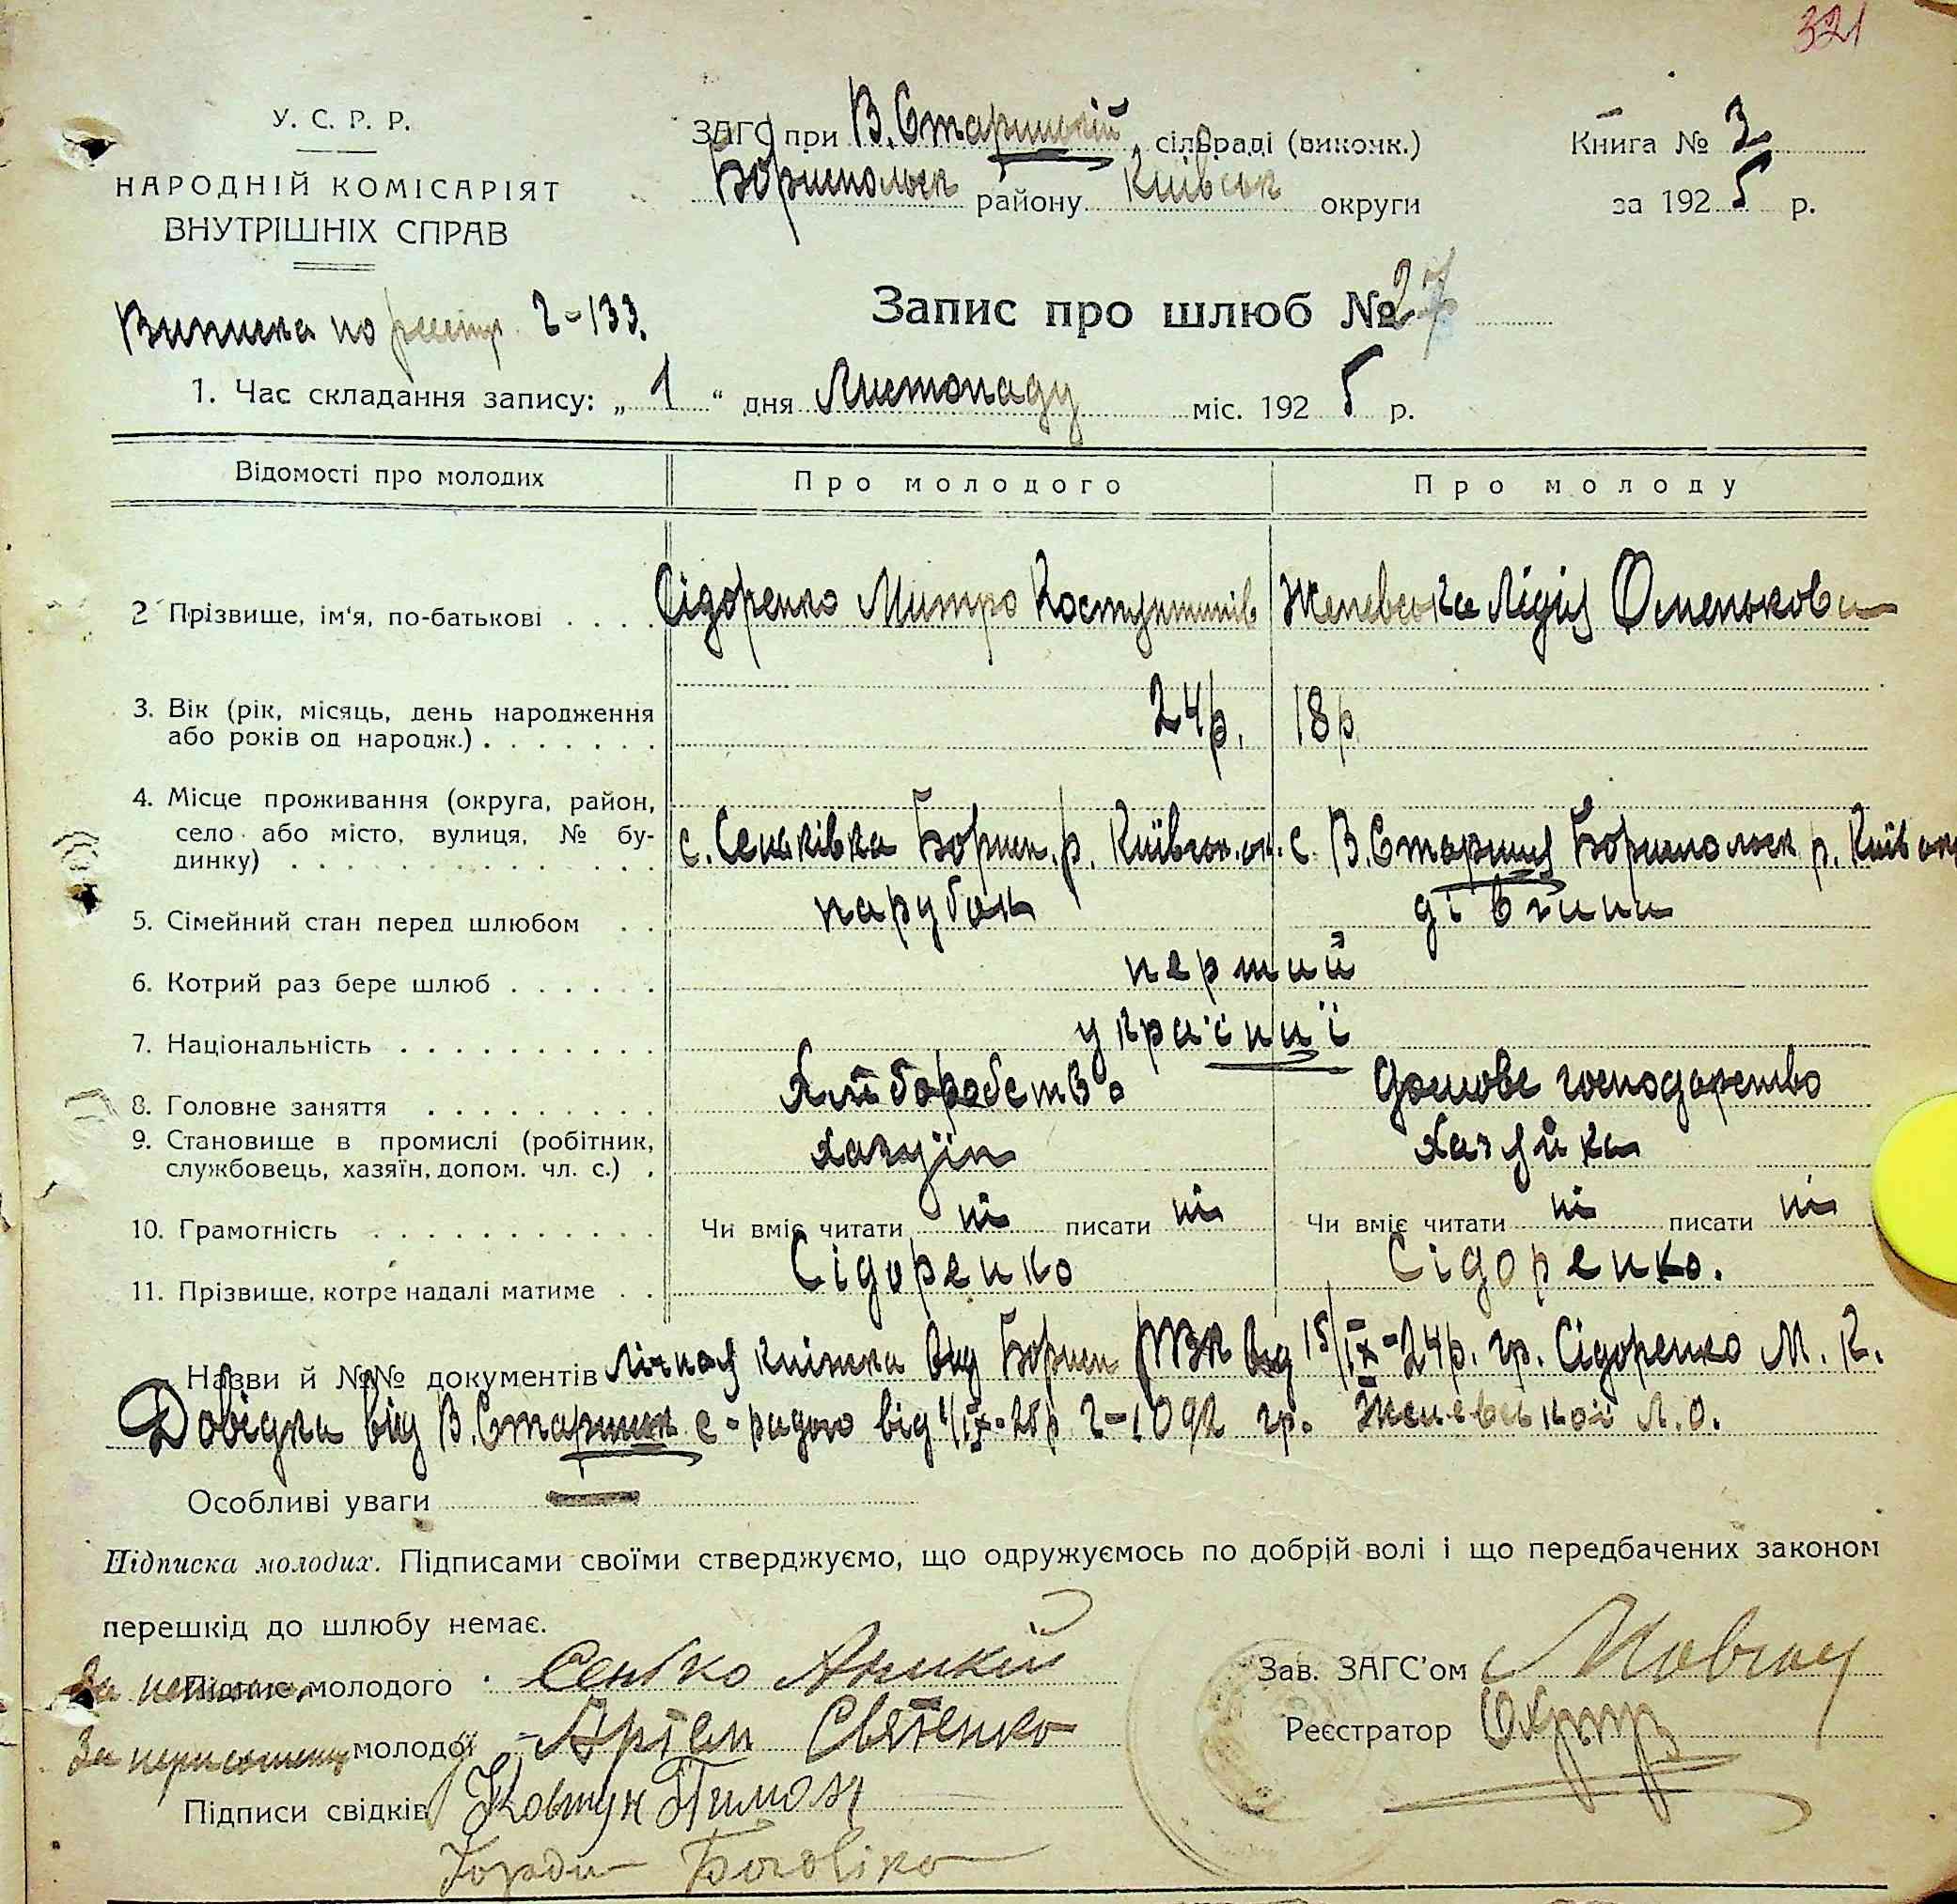 321
У. С. Р. Р.
НАРОДНІЙ КОМІСАРІЯТ
ВНУТРІШНІХ СПРАВ
ЗАГС при В. Старицькій сільраді (виконк.)
Бориспольск району Київськ округи
Книга № 3
за 1925 р.
Виписка по реєстр. 2-133.
Запис про шлюб № 27
1. Час складання запису: „ 1 “ дня Листопаду міс. 1925 р.
Відомості про молодих Про молодого Про молоду
2 Прізвище, ім'я, по-батькові . . . . Сідоренко Митро Костянтинів Женевська Лідія Омелькова
3. Вік (рік, місяць, день народження
або років од народж.) . . . . . . . 24 р. 18 р
4. Місце проживання (округа, район,
село або місто, вулиця, № бу-
динку) . . . . . . . . . . . . . с. Сеньківка Борисп. р. Київськ. ок. с. В. Стариця Бориспольск р. Київ окр
5. Сімейний стан перед шлюбом . . парубок дівчина
6. Котрий раз бере шлюб . . . . . . перший
7. Національність . . . . . . . . . . україниї
8. Головне заняття . . . . . . . . . Хліборобство домове господарство
9. Становище в промислі (робітник,
службовець, хазяїн, допом. чл. с.) . хазяїн хазяйка
10. Грамотність . . . . . . . . . . . . Чи вміє читати ні писати ні Чи вміє читати ні писати ні
11. Прізвище, котре надалі матиме . . Сідоренко Сідоренко.
Назви й №№ документів Лічная книжка від Борисп РВК від 15/IX-24р. гр. Сідоренко М. К.
Довідка від В. Стариц с-радою від 1/IX-25р 2-1092 гр. Женевської Л. О.
Особливі уваги —
Підписка молодих. Підписами своїми стверджуємо, що одружуємось по добрій волі і що передбачених законом
перешкід до шлюбу немає.
За Підпис молодого Сенько
За молодої Артем Святенко
Підписи свідків Ковтун Тимош
Зав. ЗАГС'ом Мовчан
Реєстратор